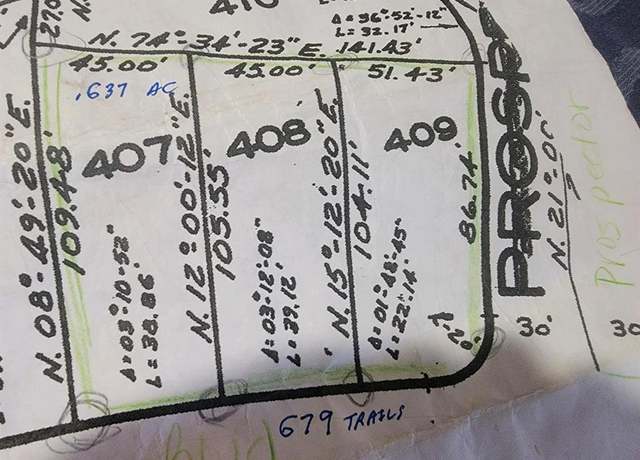 410
270
N.
Δ = 36°-52'-12"
L = 32.17'
N. 74°-34'-23" E. 141.43'
45.00'
45.00'
51.43'
.637 AC
407
408
409
N. 08°-49'-20" E.
109.48'
N. 12°-00'-12" E.
105.55'
N. 15°-12'-20" E.
104.11'
86.74'
Δ = 03°-10-52"
L = 38.86'
Δ = 03°-12'-08"
L = 39.12'
Δ = 01°-48'-45"
L = 22.14
PROSP
N. 21°-00'
Prospector
30'
30
679 TRAILS